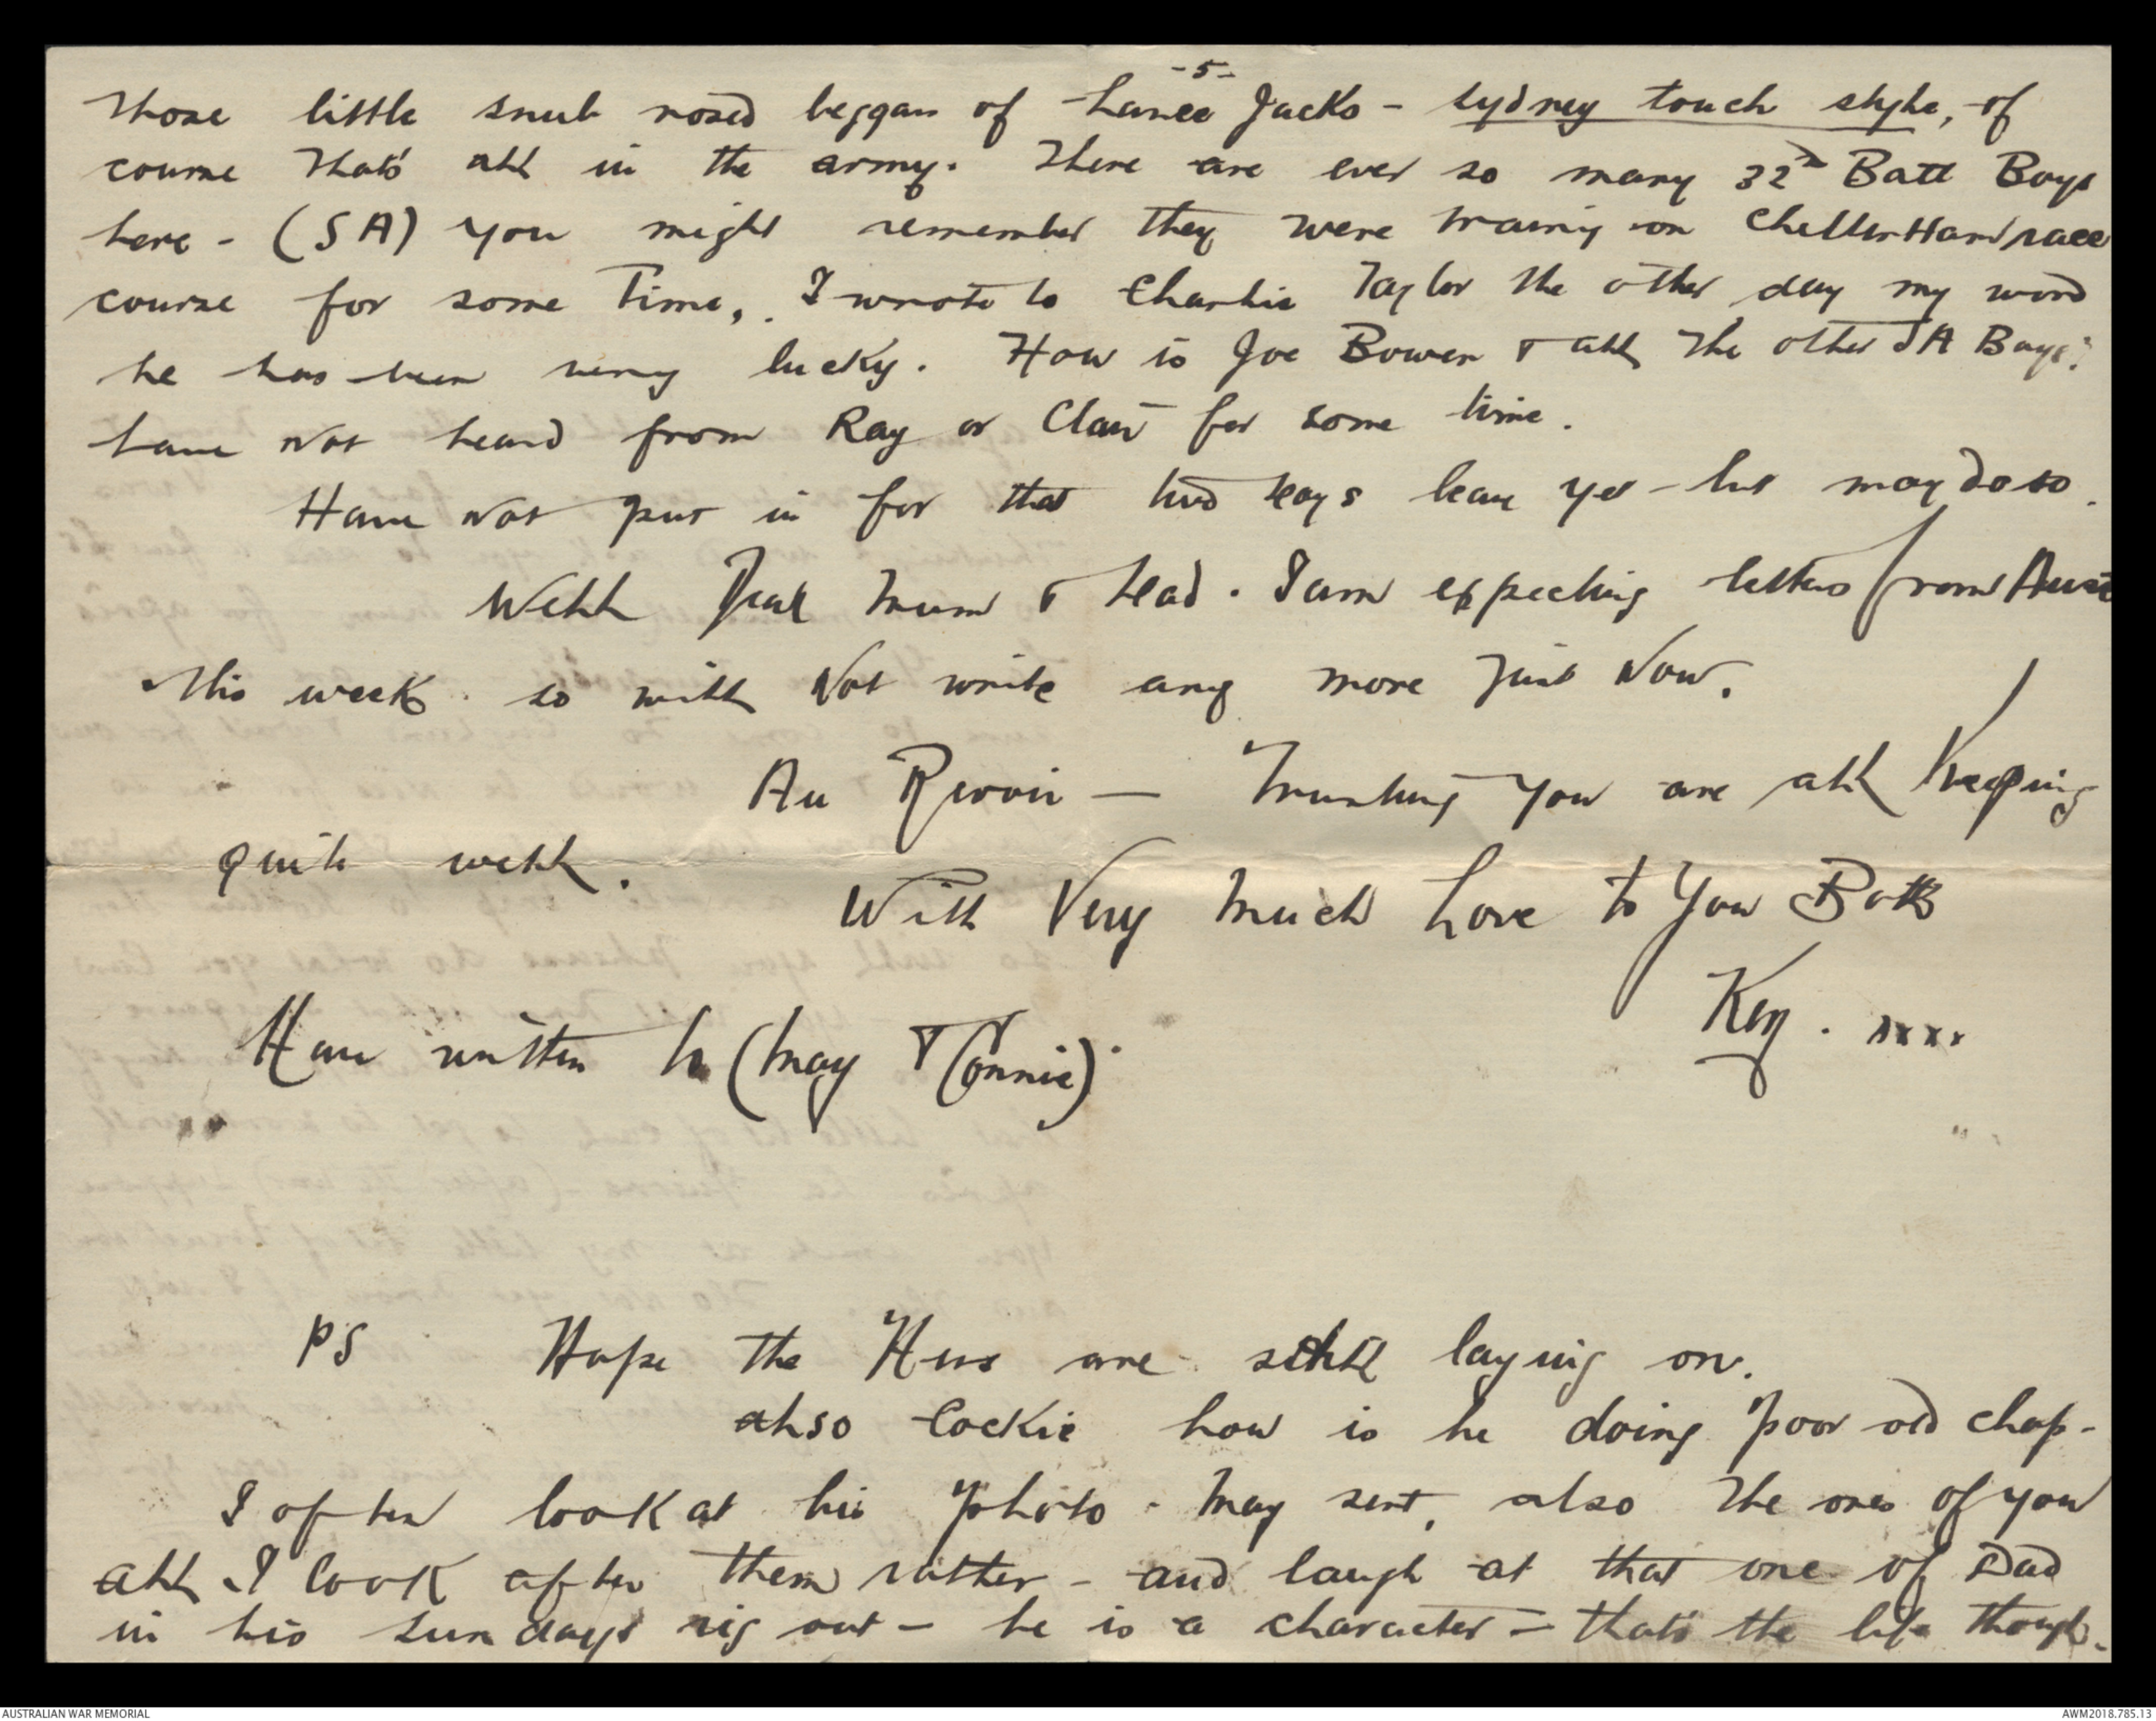 -5-
those little snub nosed beggars of Lance Jacks - Sydney touch style, of
course that's all in the army. There are ever so many 32nd Batt Boys
here - (SA) you might remember they were training on Cheltenham race
course for some Time, I wrote to Charlie Taylor the other day my word
he has been very lucky. How is Joe Bowen & all the other SA Boys?
have not heard from Ray or for some time.
Have not put in for that two days leave yet - but may do so.
Well Dear Mum & Dad. I am expecting letters from Aust
this week. so will Not write any more just Now.
Au Revoir - Trusting you are all Keeping
quite well.
With Very Much Love to You Both
Key. xxxx
Have written to (May & Connie).
PS Hope the Hens are still laying on.
also Cockie how is he doing poor old chap -
I often look at his photo - May sent, also the ones of you
all I look after them rather - and laugh at that one of Dad
in his sundays rig out - he is a character - that's the life though.
AUSTRALIAN WAR MEMORIAL
AWM2018.785.13